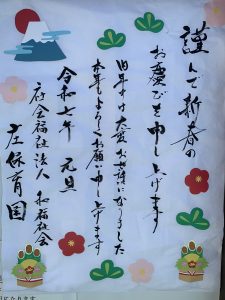 謹んで新春の
お慶びを申し上げます
旧年中は大変お世話になりました
本年もよろしくお願い申し上げます
令和七年 元旦
社会福祉法人 和福祉会
庄保育園
になります